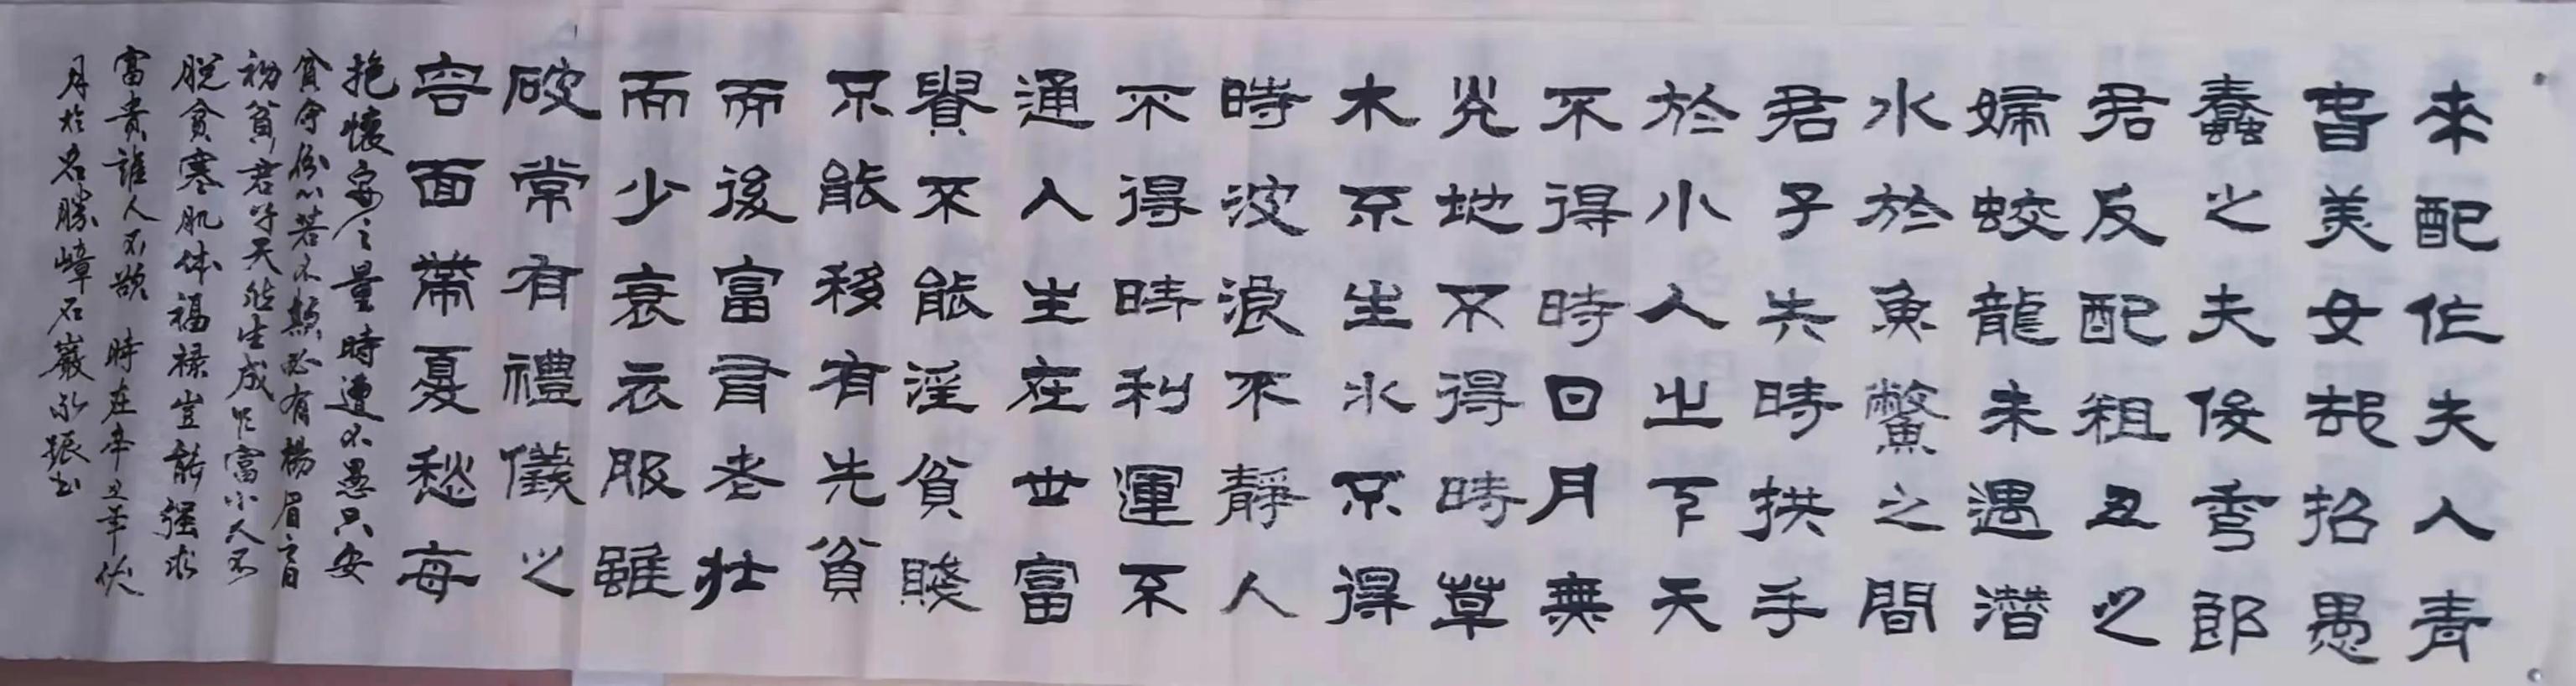 來配作夫人青
昏美女却招愚
蠢之夫俊秀郎
君反配粗丑之
婦蛟龍未遇潛
水於魚鱉之間
君子失時拱手
於小人之下天
不得時日月無
光地不得時草
木不生水不得
時波浪不靜人
不得時利運不
通人生在世富
貴不能淫貧賤
不能移有先貧
而後富有老壯
而少衰衣服雖
破常有禮儀之
容面帶憂愁每
抱懷安之量時遭不遇只安
貧守份心若不欺必有楊眉之日
初貧君子天然生成乍富小人不
脱貧寒肌体福祿豈能強求
富貴誰人不欲 時在辛丑年伏
月於名勝嶂石巖 永振书